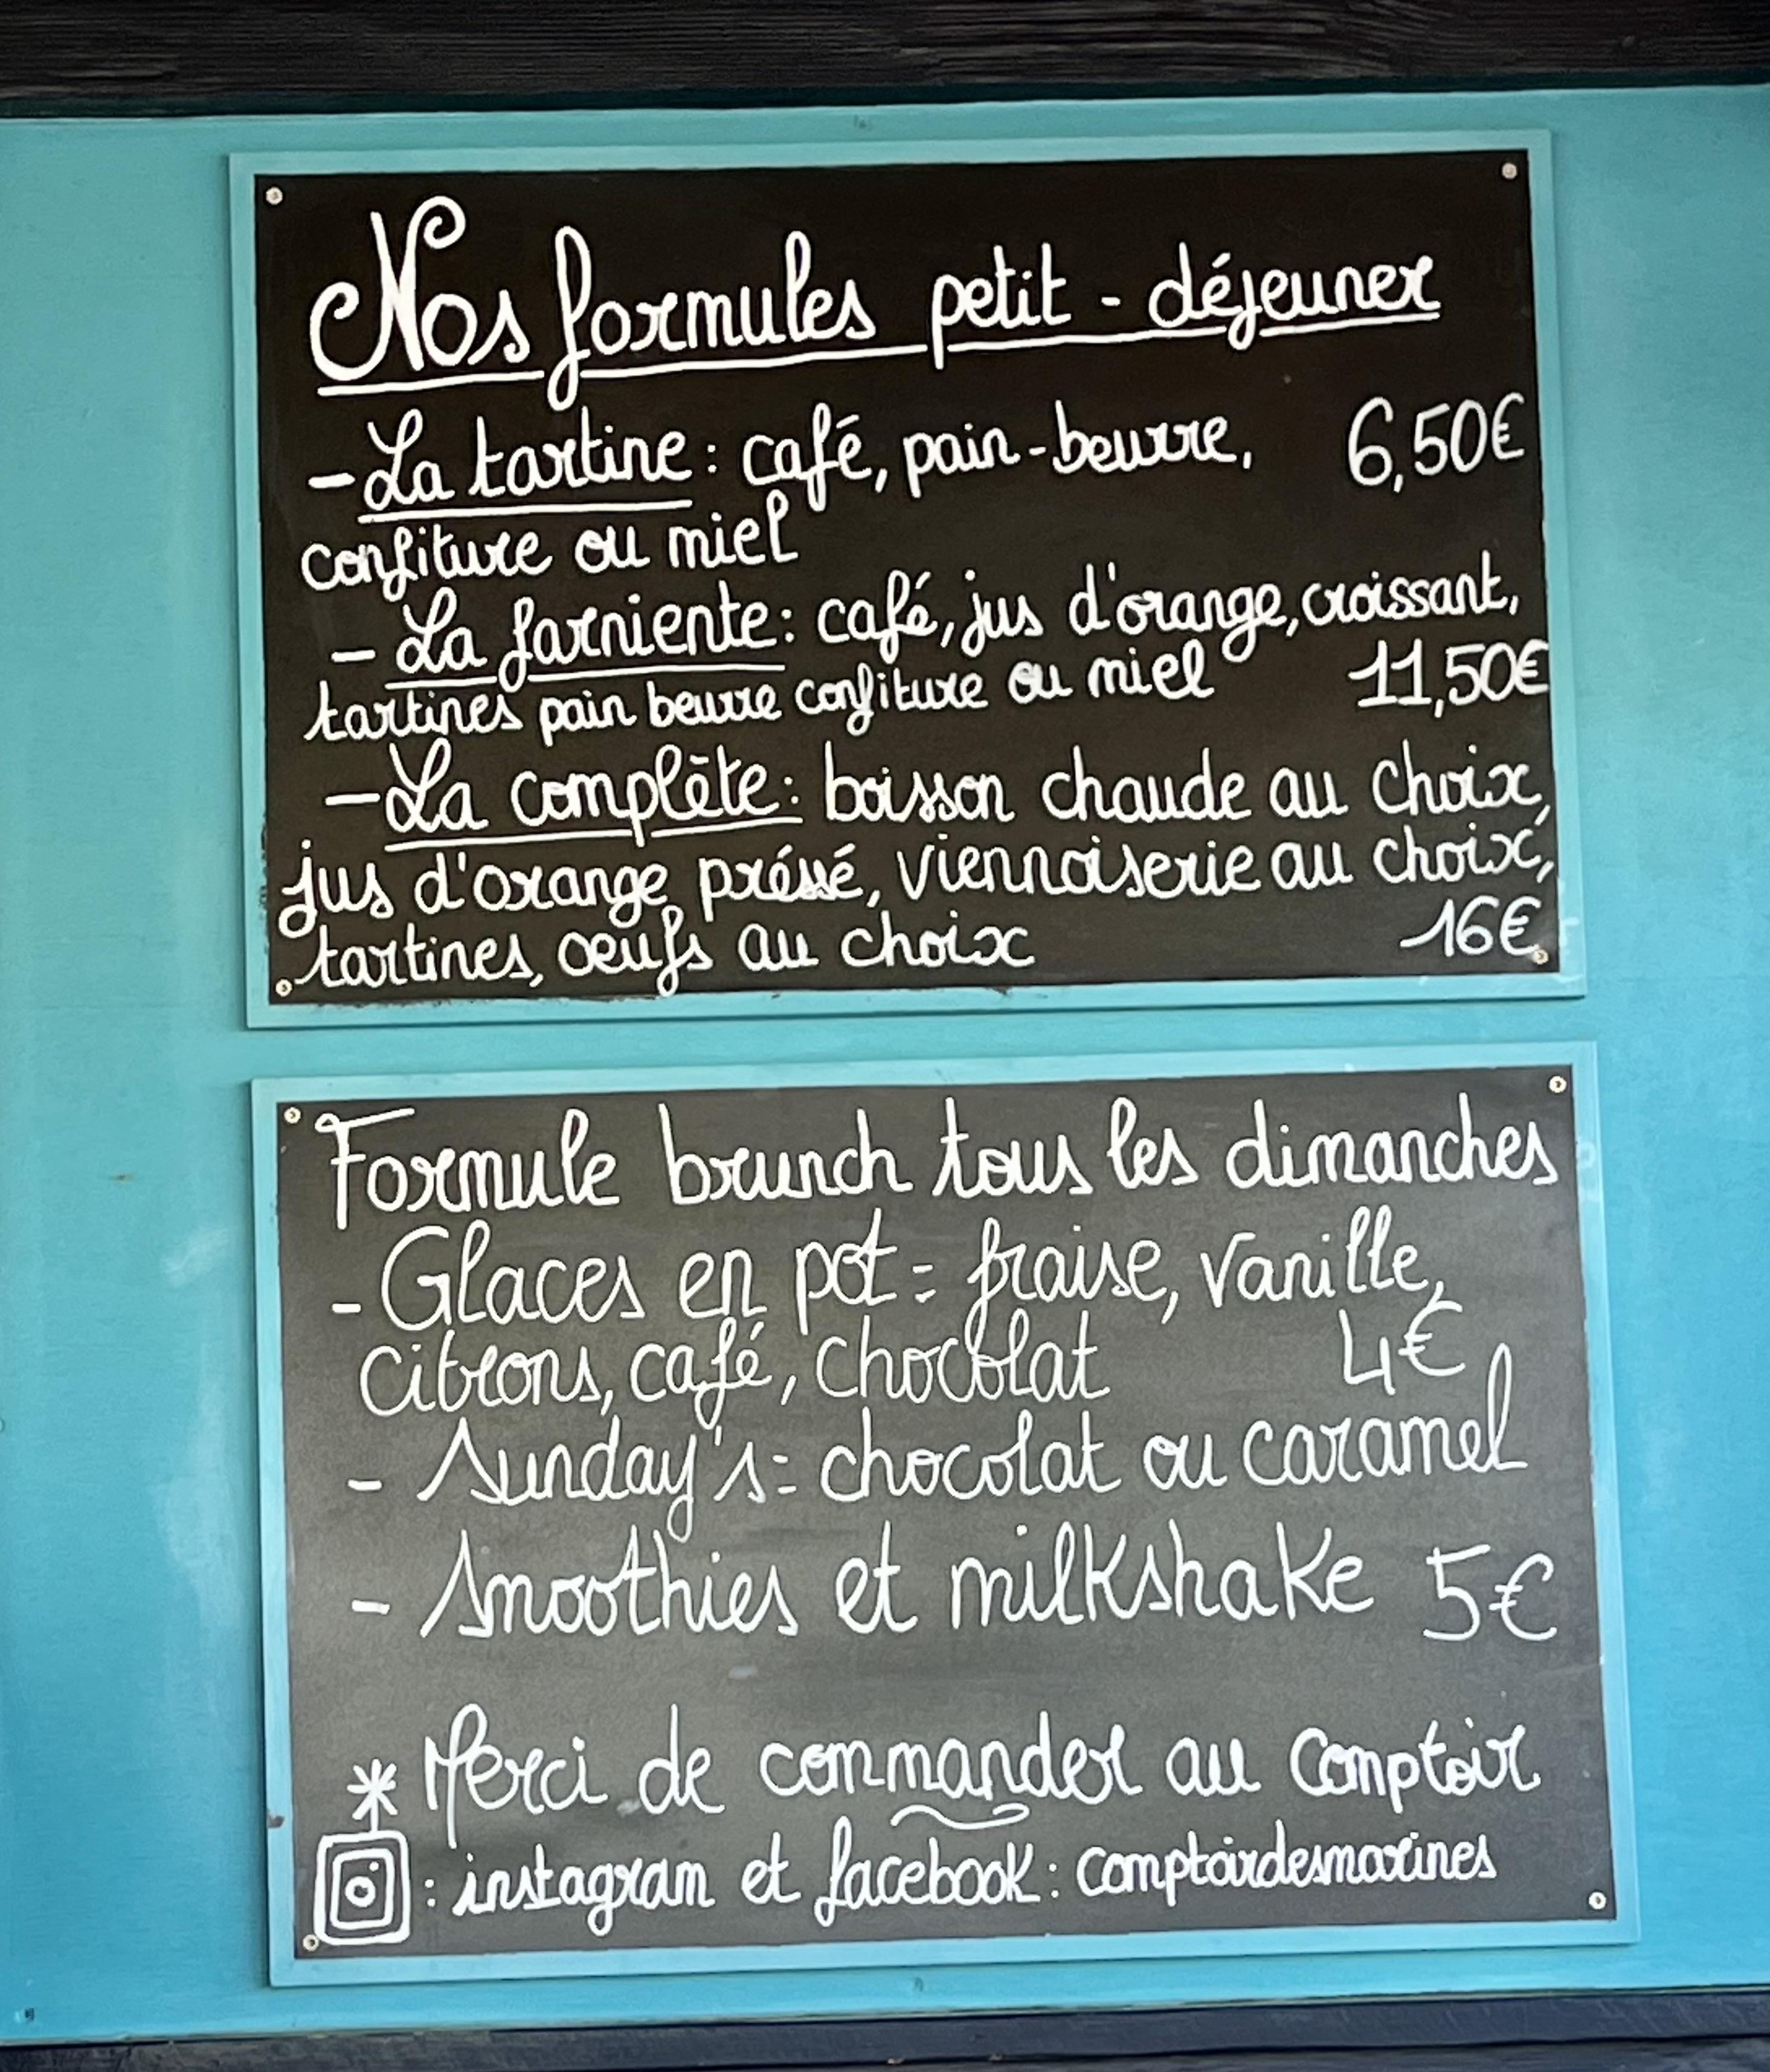 Nos formules petit-déjeuner
- La tartine : café, pain-beurre, 6,50€
confiture ou miel
- La farniente : café, jus d'orange, croissant,
tartines pain beurre confiture ou miel 11,50€
- La complète : boisson chaude au choix,
jus d'orange préssé, viennoiserie au choix,
tartines, oeufs au choix 16€
Formule brunch tous les dimanches
- Glaces en pot = fraise, vanille,
citrons, café, chocolat 4€
- Sunday's = chocolat ou caramel
- Smoothies et milkshake 5€
* Merci de commander au comptoir
: instagram et facebook : comptoirdesmarines